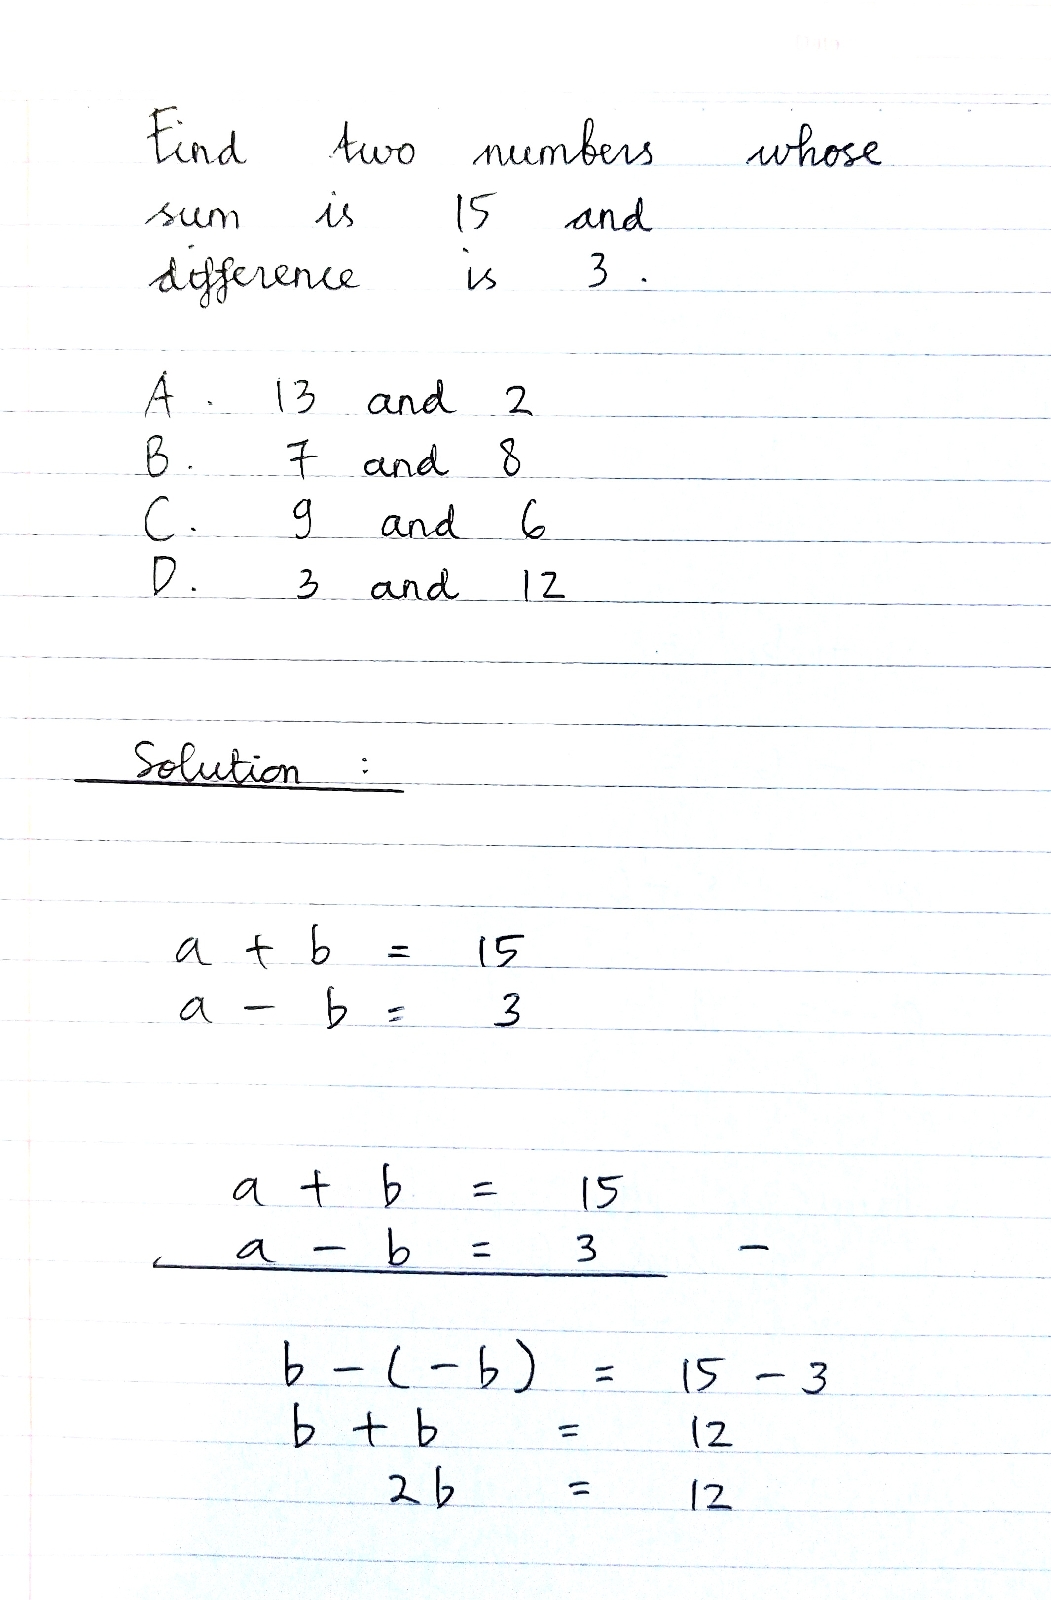 Find two numbers whose
sum is 15 and
difference is 3.
A. 13 and 2
B. 7 and 8
C. 9 and 6
D. 3 and 12
Solution :
a + b = 15
a - b = 3
a + b = 15
a - b = 3 -
b - (-b) = 15 - 3
b + b = 12
2b = 12